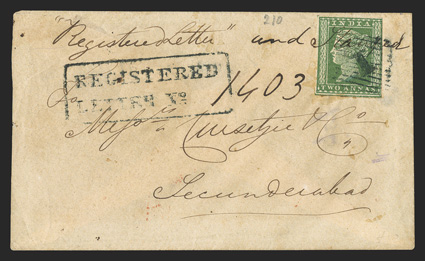 210
"Registered Letter" and Stamped
INDIA
TWO ANNAS
REGISTERED
LETTER No
1403
Messrs Cursetjee & Co
Secunderabad